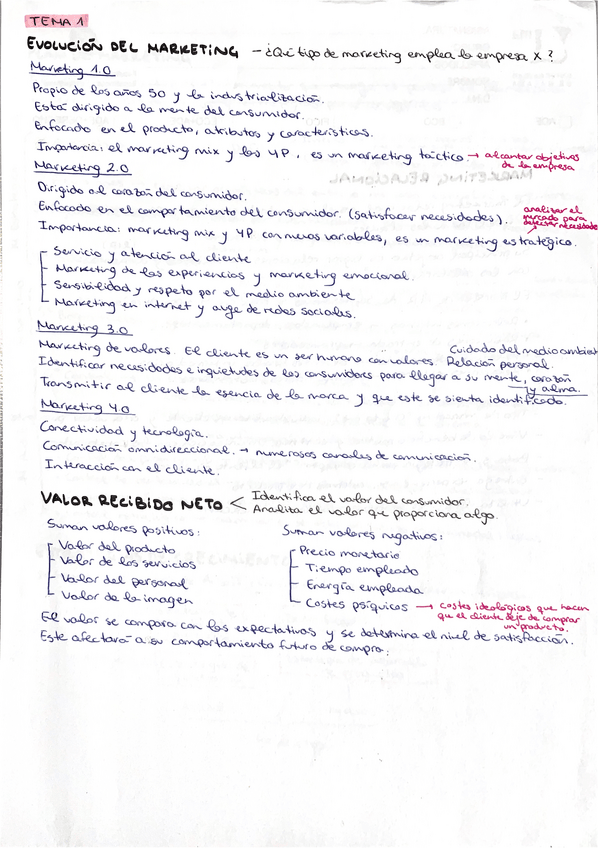 TEMA 1
EVOLUCIÓN DEL MARKETING – ¿Qué tipo de marketing emplea la empresa X?
Marketing 1.0
Propio de los años 50 y la industrialización.
Está dirigido a la mente del consumidor.
Enfocado en el producto, atributos y características.
Importancia: el marketing mix y las 4P, es un marketing táctico → alcanzar objetivos de la empresa
Marketing 2.0
Dirigido al corazón del consumidor.
Enfocado en el comportamiento del consumidor. (satisfacer necesidades).
analizar el mercado para detectar necesidades
Importancia: marketing mix y 4P con nuevas variables, es un marketing estratégico.
Servicio y atención al cliente
Marketing de las experiencias y marketing emocional.
Sensibilidad y respeto por el medio ambiente
Marketing en internet y auge de redes sociales.
Marketing 3.0
Marketing de valores. El cliente es un ser humano con valores. Cuidado del medio ambient
Relación personal.
Identificar necesidades e inquietudes de los consumidores para llegar a su mente, corazón y alma.
Transmitir al cliente la esencia de la marca y que este se sienta identificado.
Marketing 4.0
Conectividad y tecnología.
Comunicación omnidireccional. → numerosos canales de comunicación.
Interacción con el cliente.
VALOR RECIBIDO NETO < Identifica el valor del consumidor.
Analiza el valor que proporciona algo.
Suman valores positivos:
Valor del producto
Valor de los servicios
Valor del personal
Valor de la imagen
Suman valores negativos:
Precio monetario
Tiempo empleado
Energía empleada
Costes psíquicos → costes ideológicos que hacen
que el cliente deje de comprar
un producto.
El valor se compara con las expectativas y se determina el nivel de satisfacción.
Este afectará a su comportamiento futuro de compra.